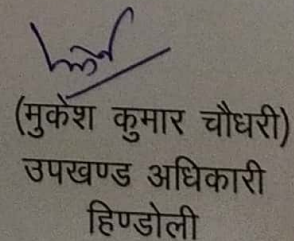 (मुकेश कुमार चौधरी)
उपखण्ड अधिकारी
हिण्डोली